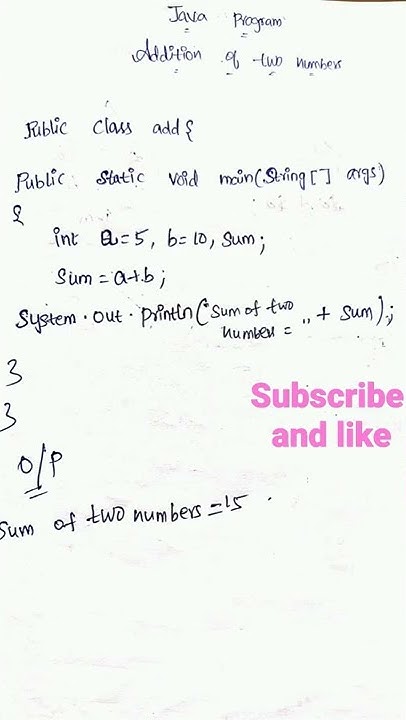 Java Program
Addition of two numbers
Public Class add {
Public static void main(String[] args)
{
int a=5, b=10, Sum;
Sum = a+b;
System.out.println("Sum of two
number = " + Sum);
}
}
Subscribe
and like
O/P
Sum of two numbers = 15